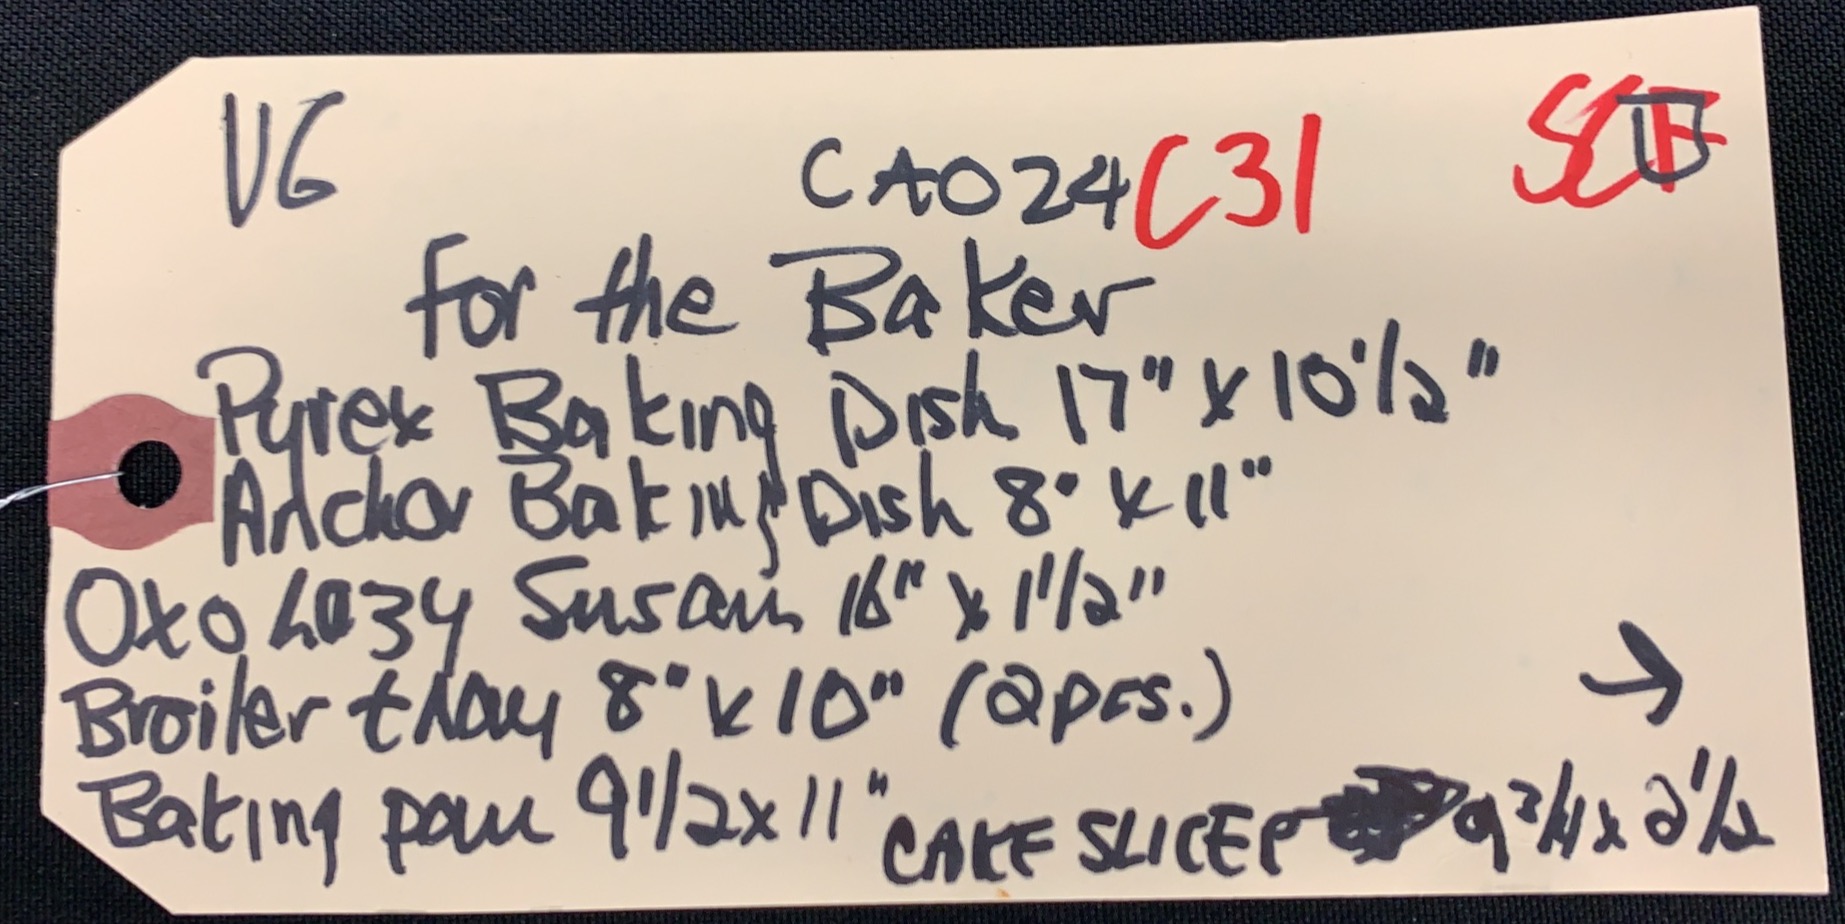 VG CAO24 C31
For the Baker
Pyrex Baking Dish 17" x 10 1/2"
Anchor Baking Dish 8" x 11"
Oxo Lazy Susan 16" x 1 1/2"
Broiler tray 8" x 10" (2pcs.) →
Baking pan 9 1/2 x 11" CAKE SLICER 9 3/4 x 2 1/2